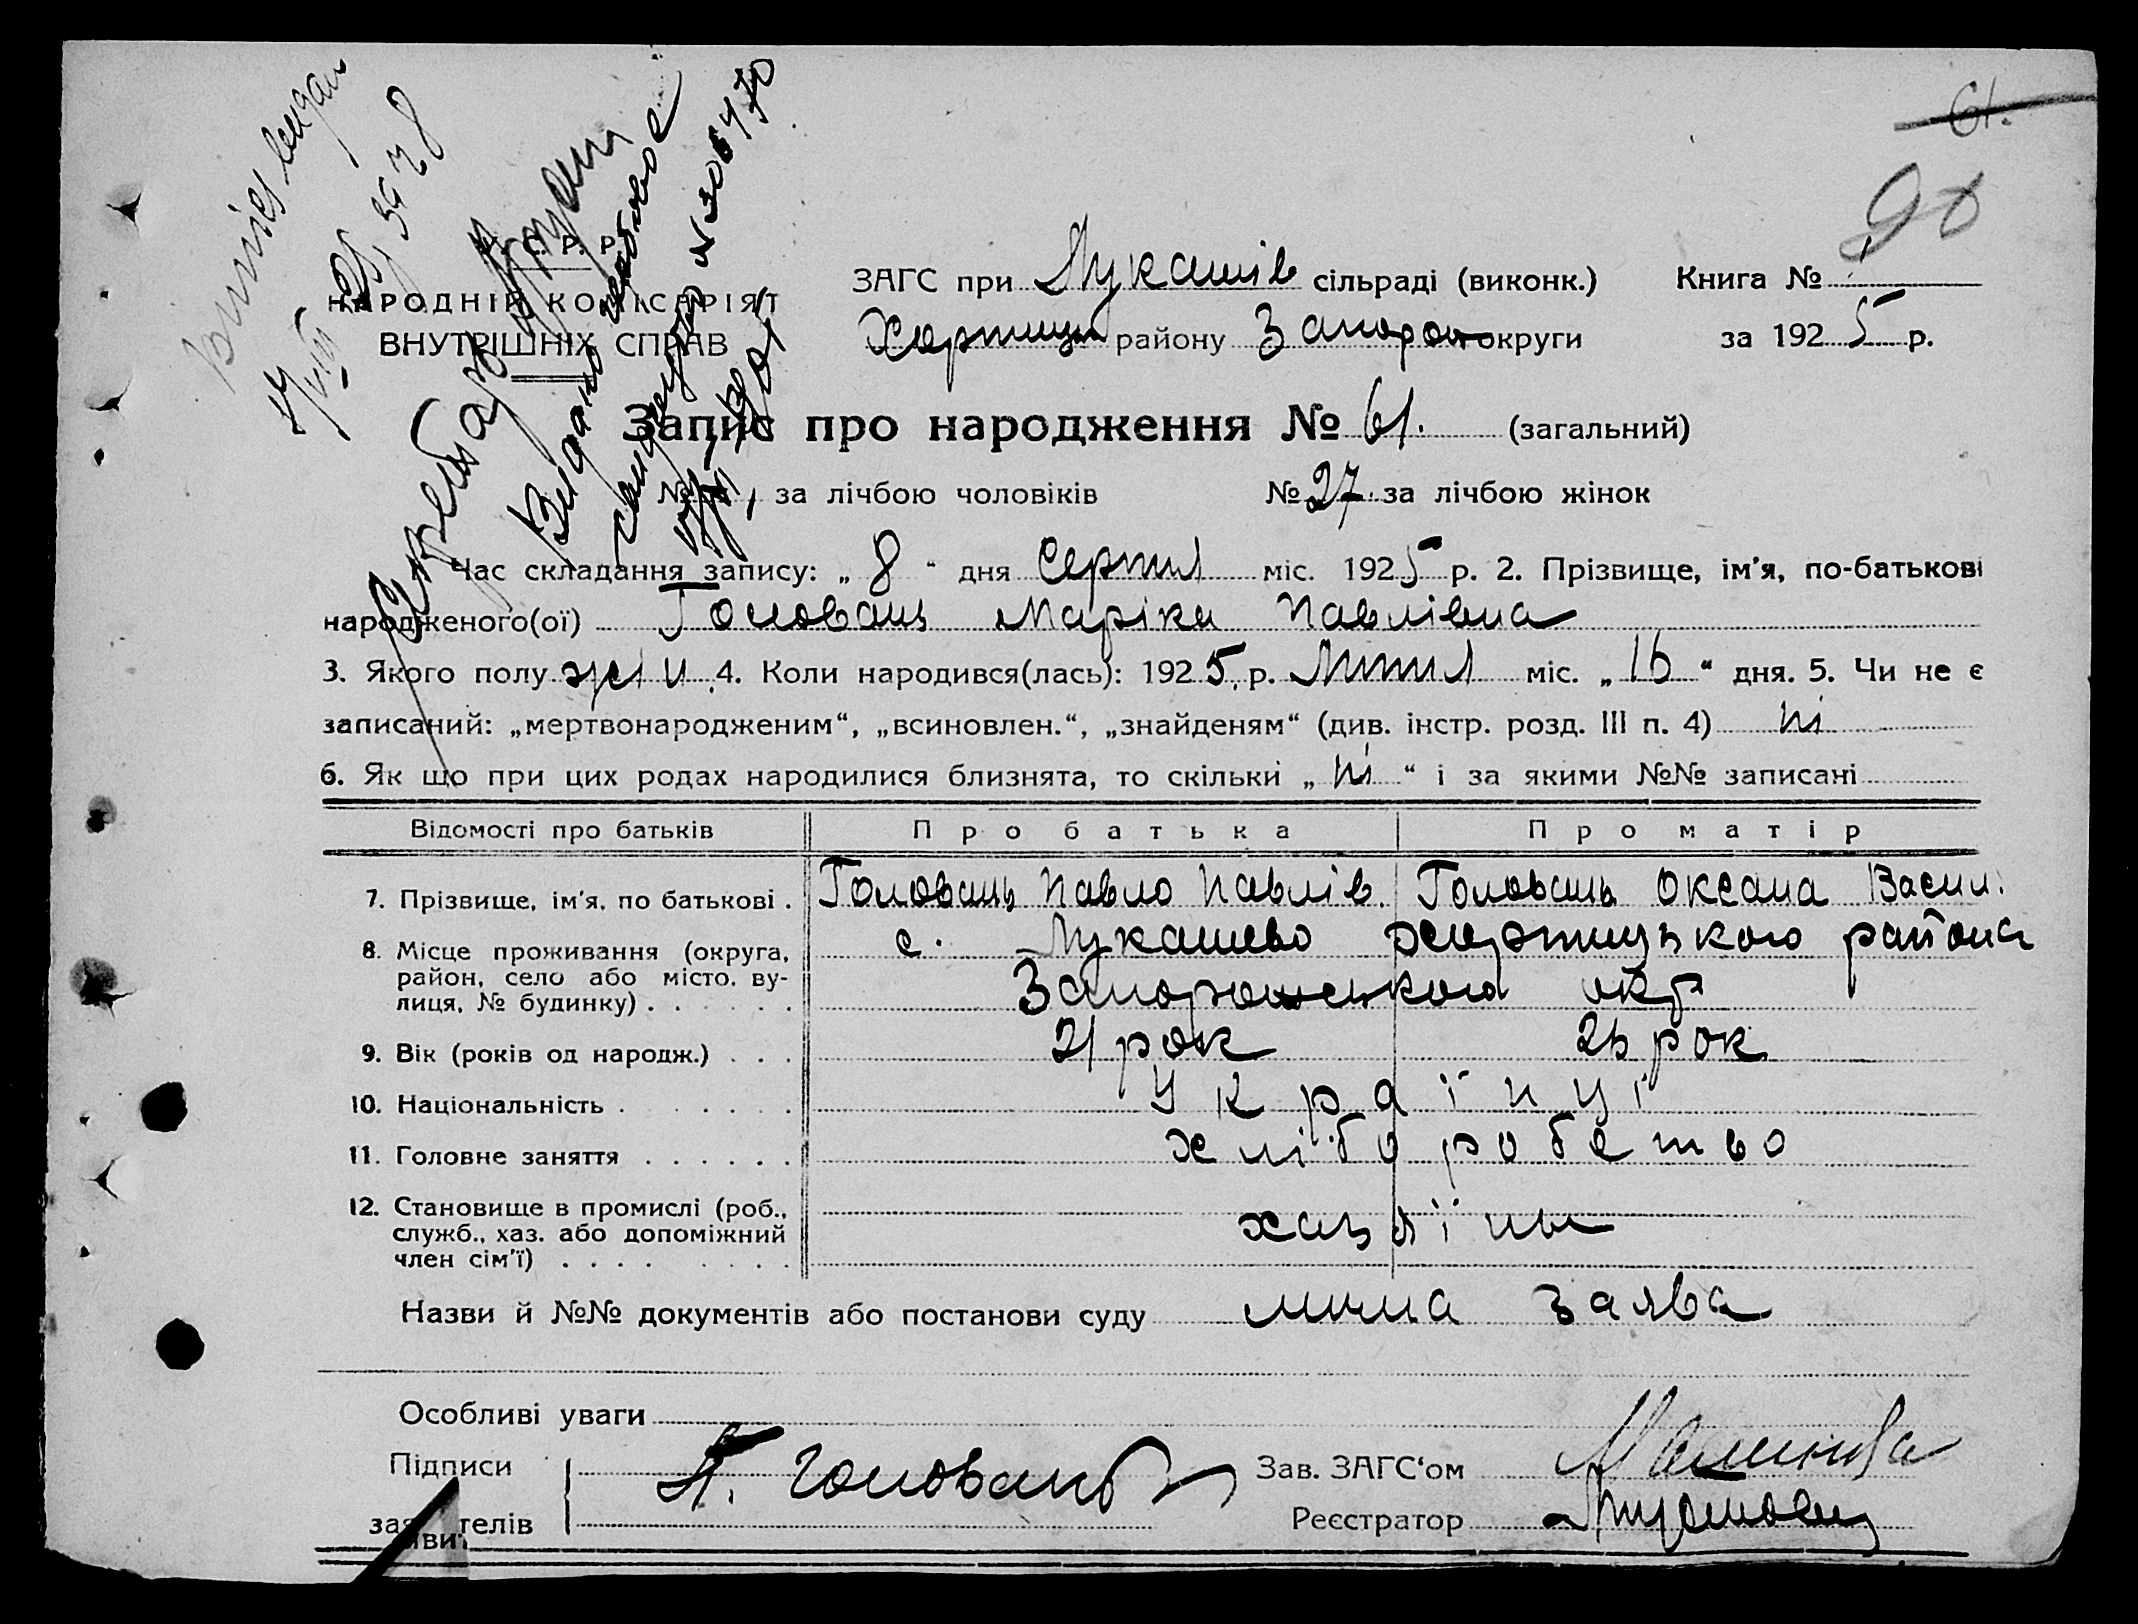 61.
90
У. С. Р. Р.
НАРОДНІЙ КОМІСАРІЯТ
ВНУТРІШНІХ СПРАВ
ЗАГС при Лукашів сільраді (виконк.) Книга № 1
Хортицьк району Запорож округи за 1925 р.
Запис про народження № 61. (загальний)
№ за лічбою чоловіків № 27 за лічбою жінок
1. Час складання запису: „ 8 “ дня Серпня міс. 1925 р. 2. Прізвище, ім’я, по-батькові
народженого(ої) Головань Маріка Павлівна
3. Якого полу жін 4. Коли народився(лась): 1925 р. Липня міс. „ 16 “ дня. 5. Чи не є
записаний: „мертвонародженим“, „всиновлен.“, „знайденям“ (див. інстр. розд. III п. 4) ні
6. Як що при цих родах народилися близнята, то скільки „ ні “ і за якими №№ записані
Відомості про батьків Про батька Про матір
7. Прізвище, ім’я, по батькові . Головань Павло Павлів. Головань Оксана Васил.
8. Місце проживання (округа, район, село або місто, ву-лиця, № будинку) . . . . . . с. Лукашево Хортицького района
Запорожського окр
9. Вік (років од народж.) . . . 21 рок 23 рок
10. Національність . . . . . . . Українці
11. Головне заняття . . . . . . хліборобство
12. Становище в промислі (роб., служб., хаз. або допоміжний член сім’ї) . . . . . . . . хазяїни
Назви й №№ документів або постанови суду лична заява
Особливі уваги
Підписи П. Головань Зав. ЗАГС‘ом
Реєстратор